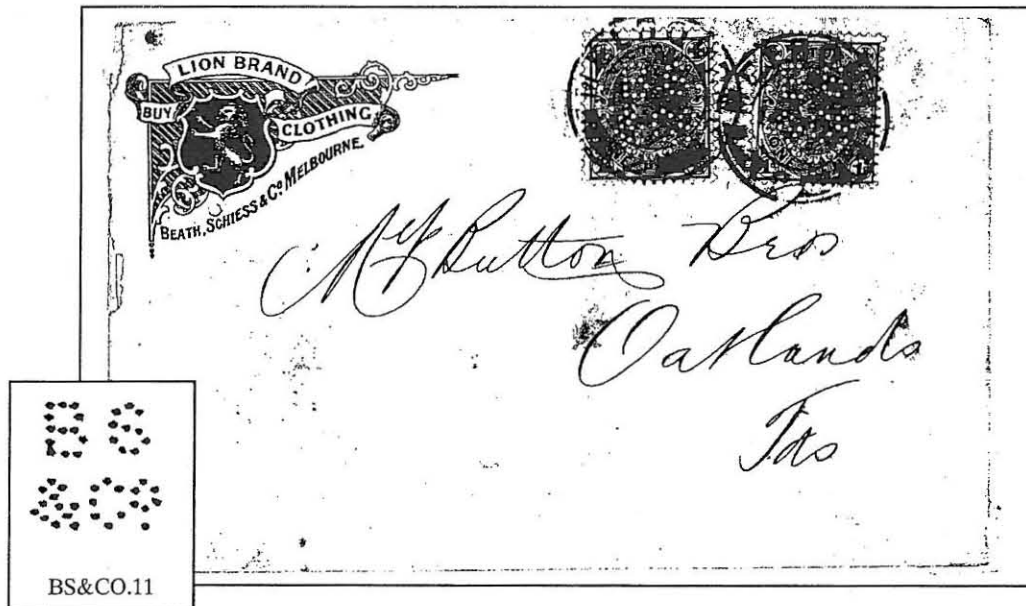 LION BRAND
BUY
CLOTHING
BEATH, SCHIESS & Co MELBOURNE.
Button Bros
Oatlands
Tas
BS
&Co
BS&CO.11